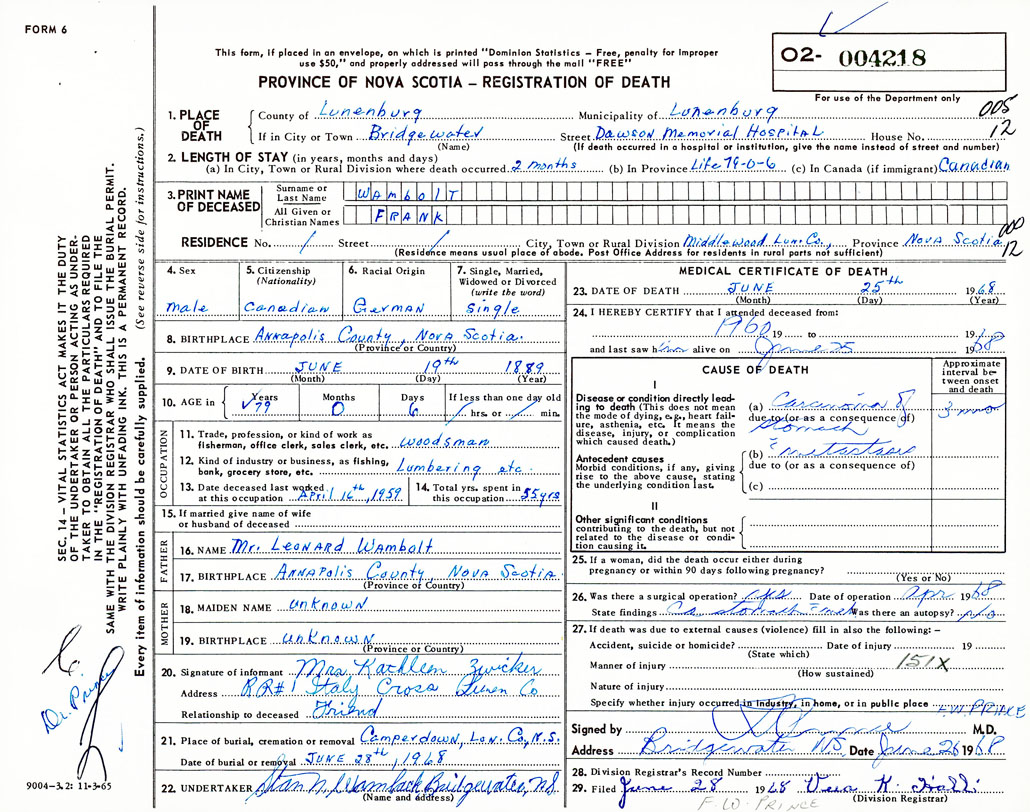 FORM 6
This form, if placed in an envelope, on which is printed "Dominion Statistics – Free, penalty for improper
use $50," and properly addressed will pass through the mail "FREE"
PROVINCE OF NOVA SCOTIA – REGISTRATION OF DEATH
O2- 004218
For use of the Department only
005
12
1. PLACE OF DEATH
County of Lunenburg Municipality of Lunenburg
If in City or Town Bridgewater Street Dawson Memorial Hospital House No.
(Name) (If death occurred in a hospital or institution, give the name instead of street and number)
2. LENGTH OF STAY (in years, months and days)
(a) In City, Town or Rural Division where death occurred 2 months (b) In Province Life 79-0-6 (c) In Canada (if immigrant) Canadian
3. PRINT NAME OF DECEASED
Surname or Last Name WAMBOLT
All Given or Christian Names FRANK
000
12
RESIDENCE No. / Street / City, Town or Rural Division Middlewood Lun. Co., Province Nova Scotia
(Residence means usual place of abode. Post Office Address for residents in rural parts not sufficient)
4. Sex
male
5. Citizenship (Nationality)
Canadian
6. Racial Origin
German
7. Single, Married, Widowed or Divorced (write the word)
Single
8. BIRTHPLACE Annapolis County, Nova Scotia.
(Province or Country)
9. DATE OF BIRTH JUNE 19th 1889
(Month) (Day) (Year)
10. AGE in Years 79 Months 0 Days 6 If less than one day old / hrs. or / min.
OCCUPATION
11. Trade, profession, or kind of work as
fisherman, office clerk, sales clerk, etc. woodsman
12. Kind of industry or business, as fishing,
bank, grocery store, etc. Lumbering etc.
13. Date deceased last worked
at this occupation April 16th, 1959
14. Total yrs. spent in
this occupation 55 yrs
15. If married give name of wife
or husband of deceased
FATHER
16. NAME Mr. Leonard Wambolt
17. BIRTHPLACE Annapolis County, Nova Scotia
(Province of Country)
MOTHER
18. MAIDEN NAME unknown
19. BIRTHPLACE unknown
(Province or Country)
20. Signature of informant Mrs Kathleen Zwicker
Address RR#1 Italy Cross Lunen Co
Relationship to deceased Friend
21. Place of burial, cremation or removal Camperdown, Lun. Co, N.S.
Date of burial or removal JUNE 28th, 1968
22. UNDERTAKER Bridgewater, NS
(Name and address)
MEDICAL CERTIFICATE OF DEATH
23. DATE OF DEATH JUNE 25th 1968
(Month) (Day) (Year)
24. I HEREBY CERTIFY that I attended deceased from:
1960 19 to 1968
and last saw him alive on June 25 1968
CAUSE OF DEATH
Approximate interval between onset and death
I
Disease or condition directly leading to death (This does not mean the mode of dying, e.g., heart failure, asthenia, etc. It means the disease, injury, or complication which caused death.)
(a) Carcinoma of stomach
due to (or as a consequence of)
3 mos
Antecedent causes
Morbid conditions, if any, giving rise to the above cause, stating the underlying condition last.
(b) metastases
due to (or as a consequence of)
(c)
II
Other significant conditions
contributing to the death, but not related to the disease or condition causing it.
25. If a woman, did the death occur either during
pregnancy or within 90 days following pregnancy?
(Yes or No)
26. Was there a surgical operation? yes Date of operation Apr 1968
State findings Ca stomach Was there an autopsy? no
27. If death was due to external causes (violence) fill in also the following: –
Accident, suicide or homicide? Date of injury 19
(State which)
Manner of injury 151X
(How sustained)
Nature of injury
Specify whether injury occurred in industry, in home, or in public place
F.W. PRINCE
Signed by M.D.
Address Bridgewater NS Date June 26 1968
28. Division Registrar's Record Number
29. Filed June 28 1968
(Division Registrar)
F. W. PRINCE
SEC. 14 – VITAL STATISTICS ACT MAKES IT THE DUTY
OF THE UNDERTAKER OR PERSON ACTING AS UNDER-
TAKER TO OBTAIN ALL THE PARTICULARS REQUIRED
IN THE "REGISTRATION OF DEATH" AND TO FILE THE
SAME WITH THE DIVISION REGISTRAR WHO SHALL ISSUE THE BURIAL PERMIT.
WRITE PLAINLY WITH UNFADING INK. THIS IS A PERMANENT RECORD.
Every item of information should be carefully supplied. (See reverse side for instructions.)
Dr. Prince
9004-3.2: 11-3-65